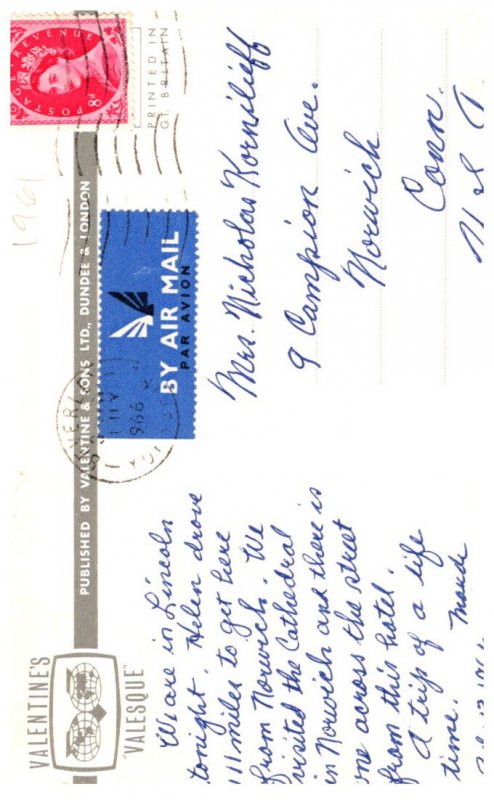 VALENTINE'S
"VALESQUE"
We are in Lincoln
tonight. Helen drove
111 miles to get here
from Norwich. We
visited the Cathedral
in Norwich and there is
one across the street
from this hotel.
A trip of a life
time. Maude
PUBLISHED BY VALENTINE & SONS LTD., DUNDEE & LONDON
1961
POSTAGE REVENUE
8D
PRINTED IN
GT. BRITAIN
BY AIR MAIL
PAR AVION
Mrs. Nicholas Korniluff
9 Campion Ave.
Norwich
Conn.
U S A.